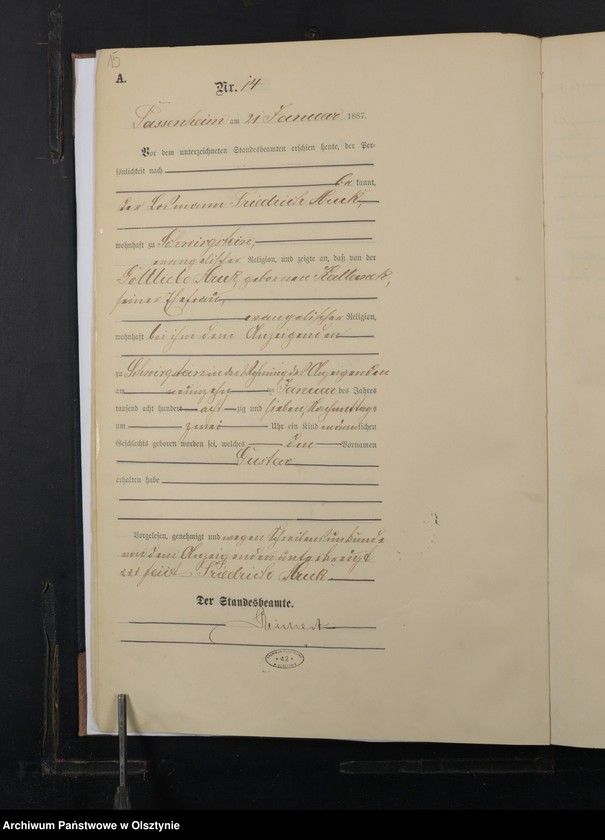 15
A.
Nr. 14
Passenheim am 21 Januar 1887.
Vor dem unterzeichneten Standesbeamten erschien heute, der Per-
sönlichkeit nach
be kannt,
der Losmann Friedrich
wohnhaft zu
evangelischer Religion, und zeigte an, daß von der
Gottliebe geborenen
seiner Ehefrau,
evangelischer Religion,
wohnhaft bei ihm dem Anzeigenden
zu in der Wohnung des Anzeigenden
am neunzehn ten Januar des Jahres
tausend acht hundert acht zig und sieben, Nachmittags
um zwei Uhr ein Kind männlichen
Geschlechts geboren worden sei, welches den Vornamen
Gustav
erhalten habe
Vorgelesen, genehmigt und wegen Schreibensunkunde
von dem Anzeigenden unterkreuzt
Friedrich
Der Standesbeamte.
* 42 *
Archiwum Państwowe w Olsztynie